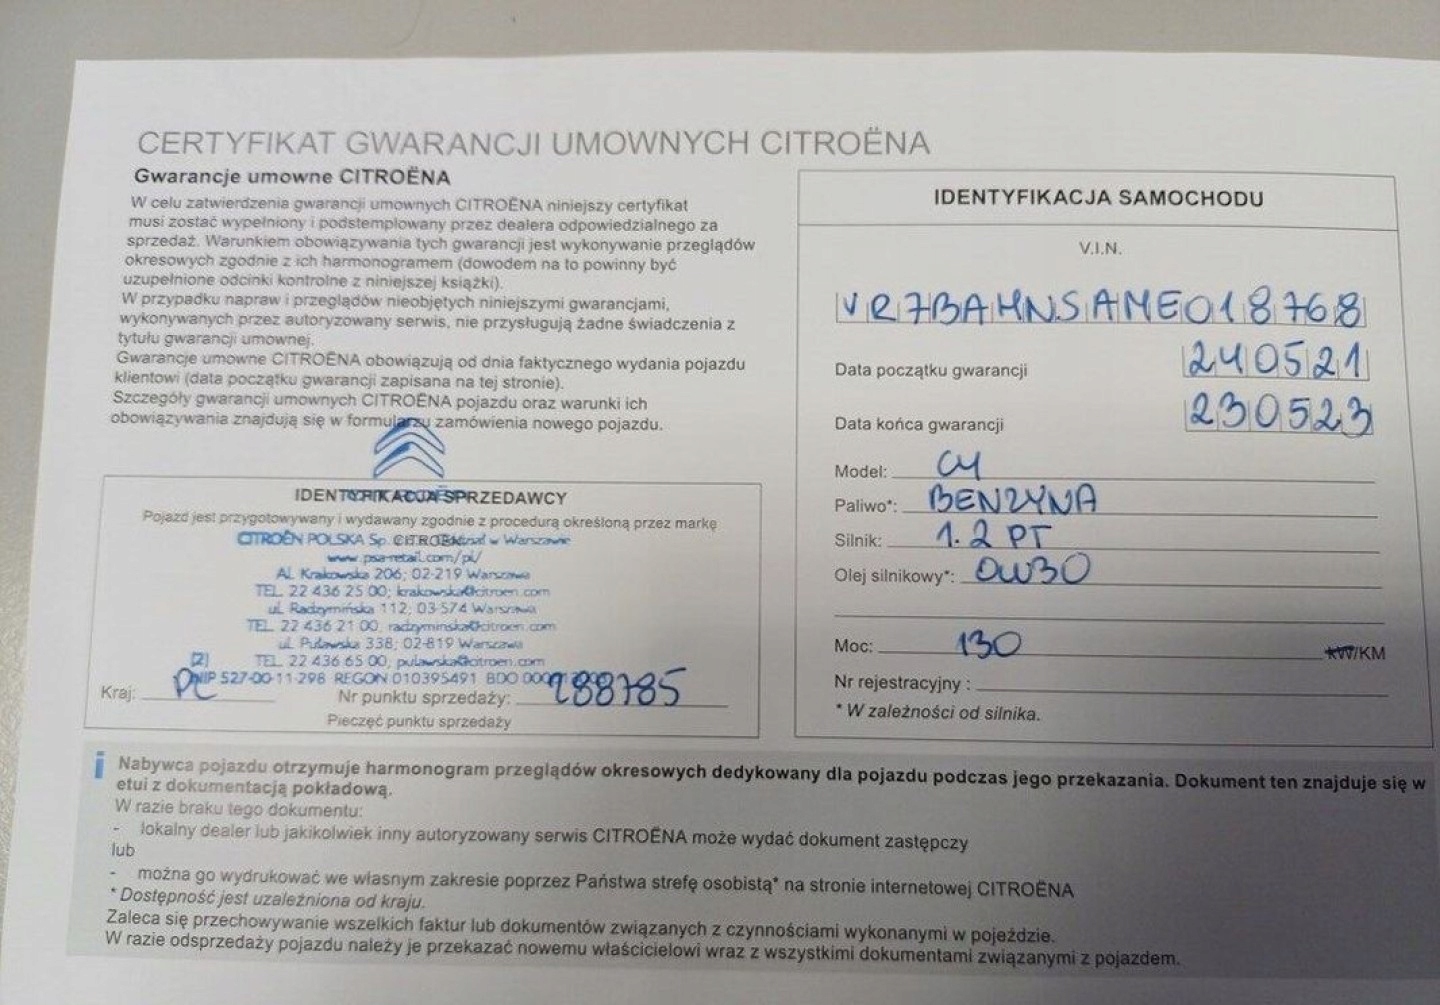 CERTYFIKAT GWARANCJI UMOWNYCH CITROËNA
Gwarancje umowne CITROËNA
W celu zatwierdzenia gwarancji umownych CITROËNA niniejszy certyfikat
musi zostać wypełniony i podstemplowany przez dealera odpowiedzialnego za
sprzedaż. Warunkiem obowiązywania tych gwarancji jest wykonywanie przeglądów
okresowych zgodnie z ich harmonogramem (dowodem na to powinny być
uzupełnione odcinki kontrolne z niniejszej książki).
W przypadku napraw i przeglądów nieobjętych niniejszymi gwarancjami,
wykonywanych przez autoryzowany serwis, nie przysługują żadne świadczenia z
tytułu gwarancji umownej.
Gwarancje umowne CITROËNA obowiązują od dnia faktycznego wydania pojazdu
klientowi (data początku gwarancji zapisana na tej stronie).
Szczegóły gwarancji umownych CITROËNA pojazdu oraz warunki ich
obowiązywania znajdują się w formularzu zamówienia nowego pojazdu.
IDENTYFIKACJA SPRZEDAWCY
Pojazd jest przygotowywany i wydawany zgodnie z procedurą określoną przez markę
CITROËN
CITROËN POLSKA Sp. w Warszawie
www.psa-retail.com/pl/
Al. Krakowska 206; 02-219 Warszawa
TEL. 22 436 25 00; krakowska@citroen.com
ul. Radzymińska 112; 03-574 Warszawa
TEL. 22 436 21 00, radzyminska@citroen.com
ul. Puławska 338; 02-819 Warszawa
[2] TEL. 22 436 65 00, pulawska@citroen.com
NIP 527-00-11-298 REGON 010395491 BDO
Kraj: PL Nr punktu sprzedaży: 288785
Pieczęć punktu sprzedaży
IDENTYFIKACJA SAMOCHODU
V.I.N.
VR7BAHNSAME018768
Data początku gwarancji 240521
Data końca gwarancji 230523
Model: C4
Paliwo*: BENZYNA
Silnik: 1.2 PT
Olej silnikowy*: 0W30
Moc: 130 kW/KM
Nr rejestracyjny :
* W zależności od silnika.
i Nabywca pojazdu otrzymuje harmonogram przeglądów okresowych dedykowany dla pojazdu podczas jego przekazania. Dokument ten znajduje się w
etui z dokumentacją pokładową.
W razie braku tego dokumentu:
- lokalny dealer lub jakikolwiek inny autoryzowany serwis CITROËNA może wydać dokument zastępczy
lub
- można go wydrukować we własnym zakresie poprzez Państwa strefę osobistą* na stronie internetowej CITROËNA
* Dostępność jest uzależniona od kraju.
Zaleca się przechowywanie wszelkich faktur lub dokumentów związanych z czynnościami wykonanymi w pojeździe.
W razie odsprzedaży pojazdu należy je przekazać nowemu właścicielowi wraz z wszystkimi dokumentami związanymi z pojazdem.